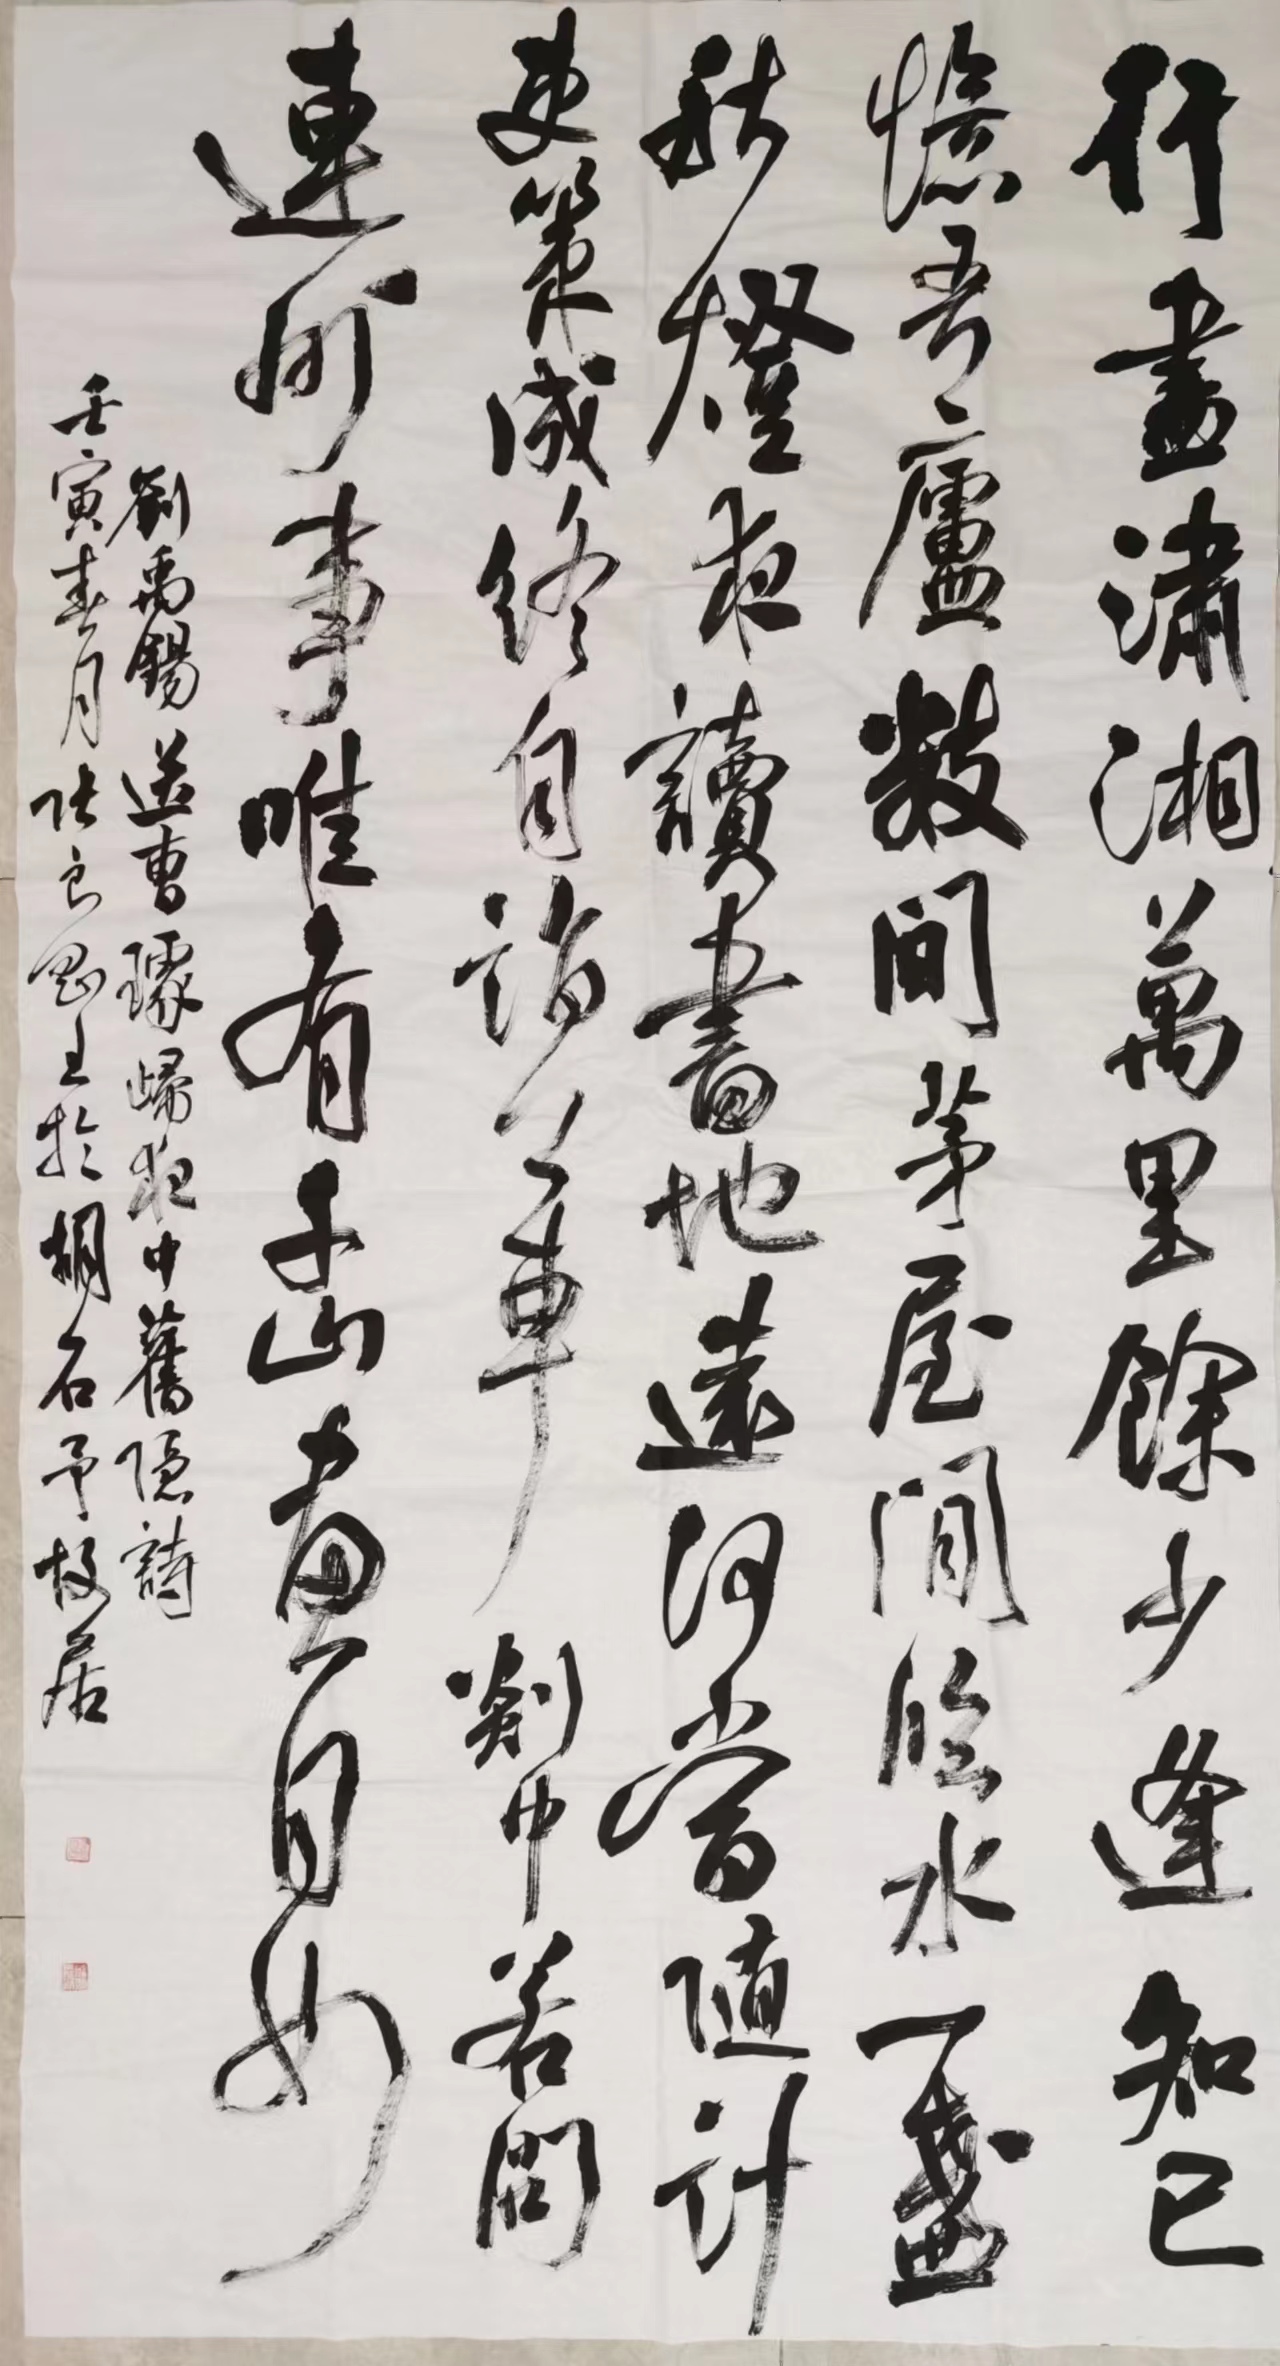 行盡瀟湘萬里餘少逢知己
憶吾廬數間茅屋閒臨水一盞
秋燈夜讀書地遠何當隨計
吏策成終自詣公車剡中若問
連州事唯有千山畫自如
劉禹錫送曹璩歸越中舊隱詩
壬寅春月張良